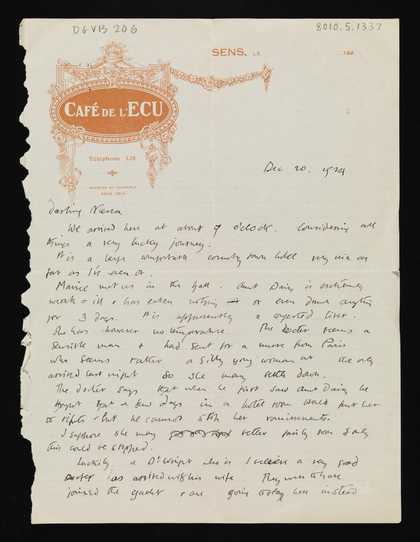 DGVB 206
8010.5.1337
SENS, LE 192
CAFÉ DE L'ECU
Téléphone 1.28
Dec 20. 1929
Darling
We arrived here at about 9 o'clock. Considering all
things a very lucky journey.
It is a large comfortable country town hotel very nice as
far as I've seen it.
met us in the hall. Aunt Daisy is extremely
weak & ill & has eaten nothing or even drunk anything
for 3 days. It is apparently a liver.
She has however no temperature. The doctor seems a
sensible man & had sent for a nurse from Paris
who seems rather a silly young woman but she only
arrived last night so she may settle down.
The doctor says that when he first saw Aunt Daisy he
hoped that a few days in a hotel room would put her
to rights but he cannot stop her
I suppose she may better fairly soon if only
this could be stopped.
Luckily a Dr Wright who is I a very good
doctor has arrived with his wife They were to have
joined the yacht & are going today here instead